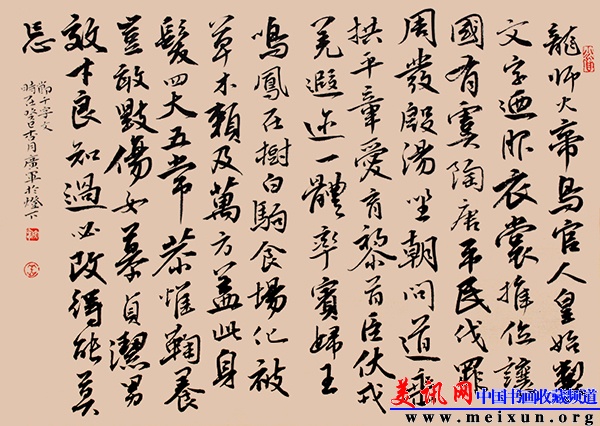 龍師火帝鳥官人皇始製
文字迺服衣裳推位讓
國有虞陶唐弔民伐罪
周發殷湯坐朝問道垂
拱平章愛育黎首臣伏戎
羌遐迩一體率賓歸王
鳴鳳在樹白駒食場化被
草木賴及萬方蓋此身
髮四大五常恭惟鞠養
豈敢毀傷女慕貞潔男
效才良知過必改得能莫
忘
節千字文
時在癸巳杏月廣軍於燈下
美讯网 中国书画收藏频道
www.meixun.org